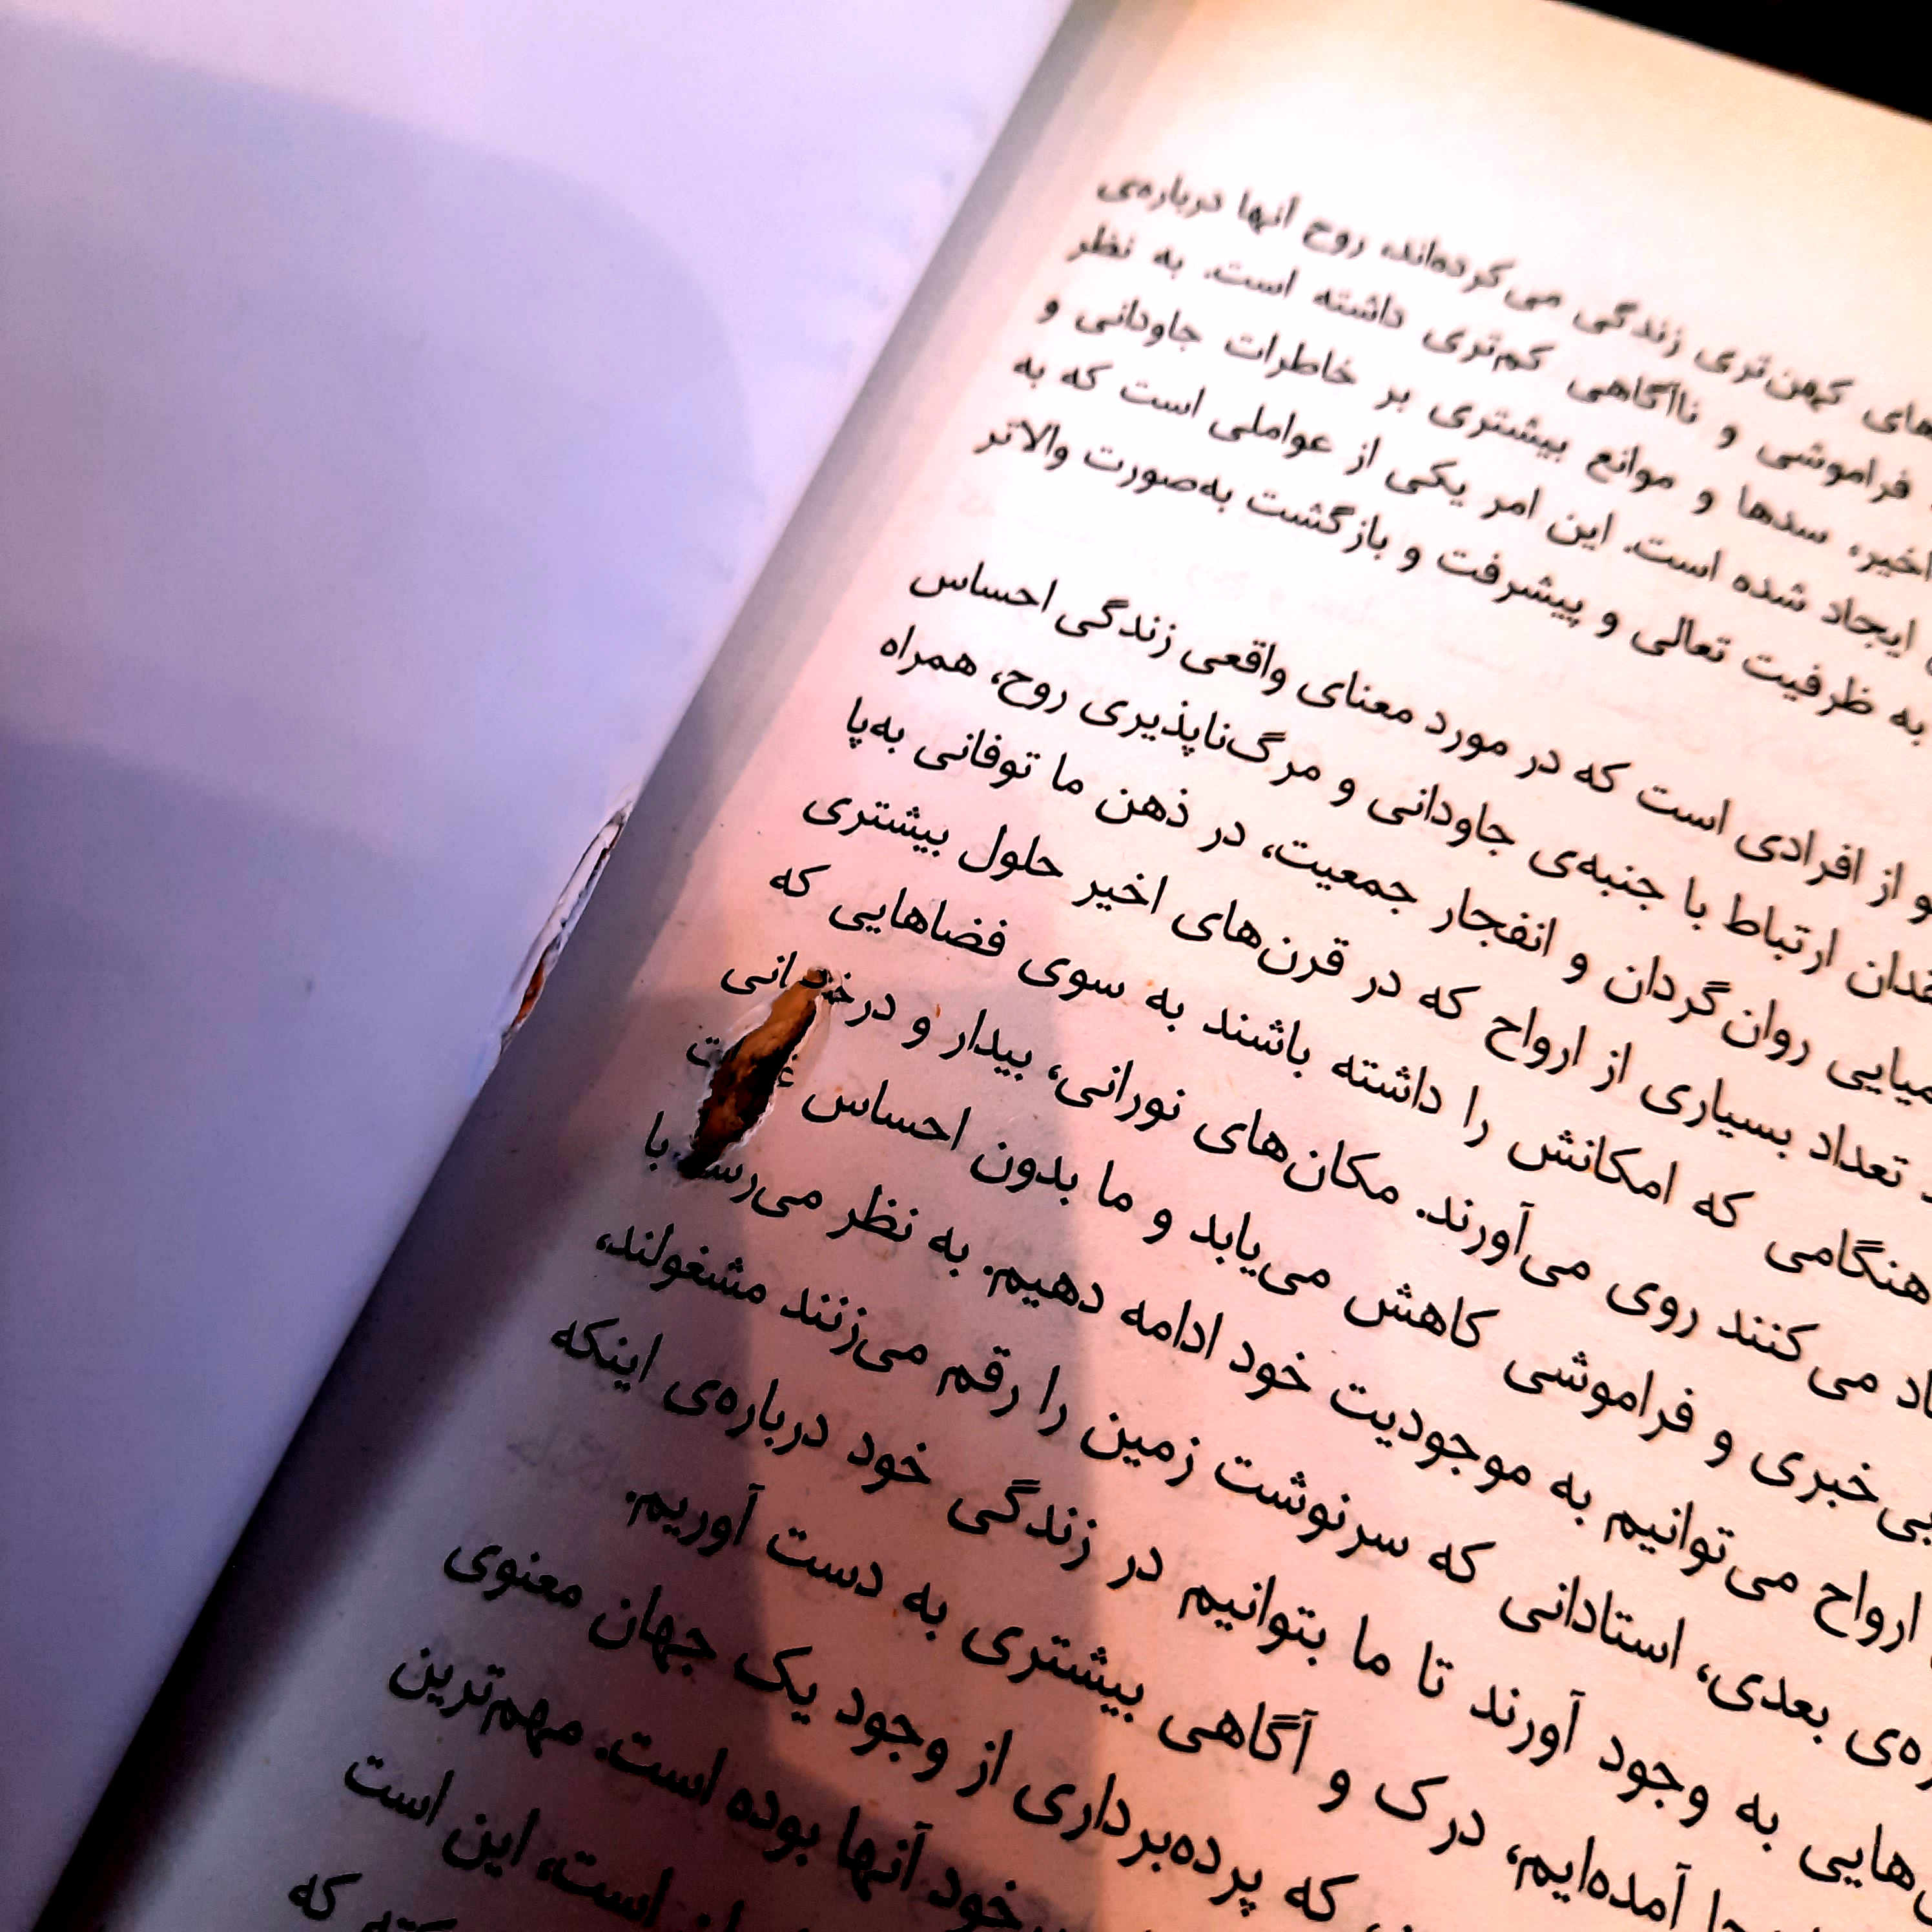 کهن‌تری زندگی می‌کرده‌اند، روح آنها درباره‌ی
فراموشی و ناآگاهی کم‌تری داشته است. به نظر
اخیر، سدها و موانع بیشتری بر خاطرات جاودانی و
ایجاد شده است. این امر یکی از عواملی است که به
به ظرفیت تعالی و پیشرفت و بازگشت به‌صورت والاتر
از افرادی است که در مورد معنای واقعی زندگی احساس
ارتباط با جنبه‌ی جاودانی و مرگ‌ناپذیری روح، همراه
روان‌گردان و انفجار جمعیت، در ذهن ما توفانی به‌پا
تعداد بسیاری از ارواح که در قرن‌های اخیر حلول بیشتری
هنگامی که امکانش را داشته باشند به سوی فضاهایی که
می‌کنند روی می‌آورند. مکان‌های نورانی، بیدار و
بی‌خبری و فراموشی کاهش می‌یابد و ما بدون احساس
ارواح می‌توانیم به موجودیت خود ادامه دهیم. به نظر با
بعدی، استادانی که سرنوشت زمین را رقم می‌زنند مشغولند،
به وجود آورند تا ما بتوانیم در زندگی خود درباره‌ی اینکه
آمده‌ایم، درک و آگاهی بیشتری به دست آوریم.
که پرده‌برداری از وجود یک جهان معنوی
خود آنها بوده است. مهم‌ترین
است، این است
که